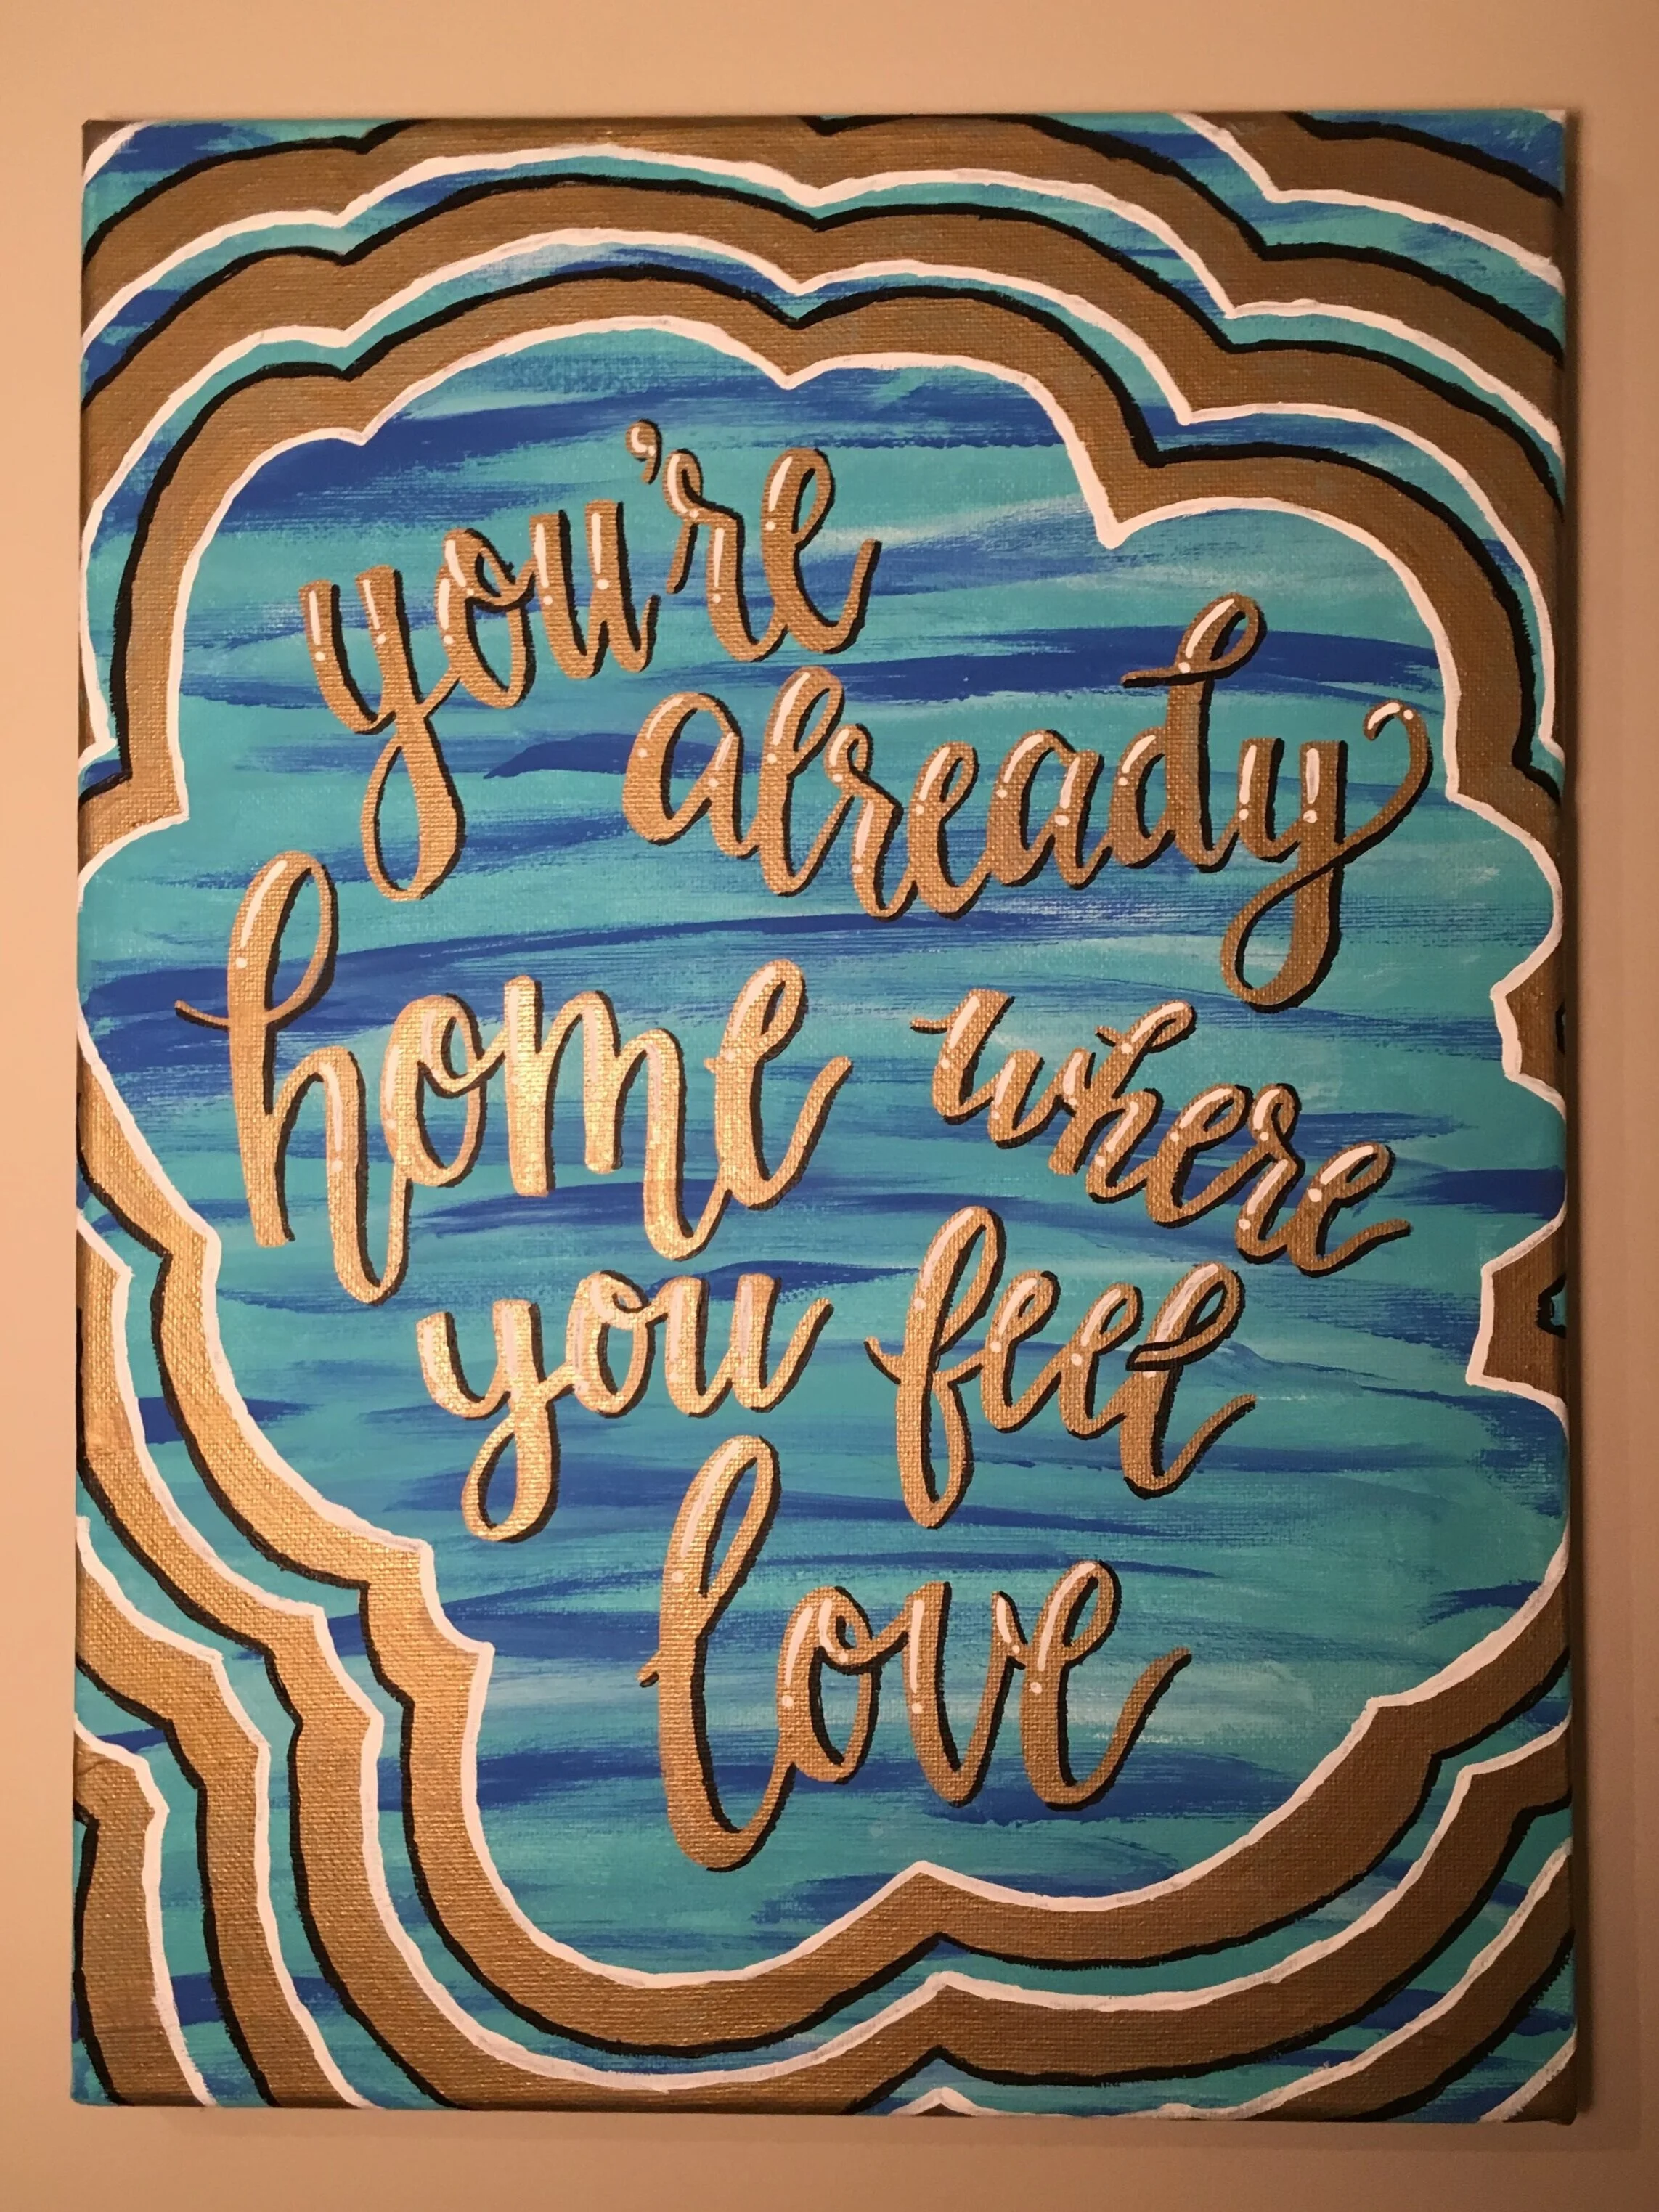 you're
already
home where
you feel
love